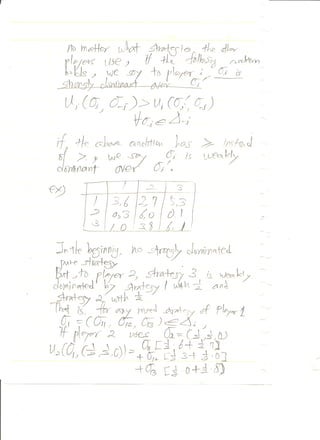 no matter what strategies the other
players use, if the following condition
holds, we say to player i, σi is
strongly dominant over σi'
Ui(σi, σ-i) > Ui(σi', σ-i)
∀σ-i ∈ Δ-i
if the above condition has ≥ instead
of >, we say σi is weakly
dominant over σi'.
ex) 1 2 3
1 3,6 2,7 5,3
2 0,3 6,0 0,1
3 1,0 3,8 6,1
In the beginning, no strongly dominated
pure strategy
But to player 2, strategy 3 is weakly
dominated by strategy 1 with ½ and
strategy 2 with ½
That is for any mixed strategy of Player 1
σ1 = (σ11, σ12, σ13) ∈ Δ1,
If player 2 uses σ2 = (½, ½, 0)
U2(σ1, (½, ½, 0)) = σ11 [½·6 + ½·7]
+ σ12 [½·3 + ½·0]
+ σ13 [½·0 + ½·8]